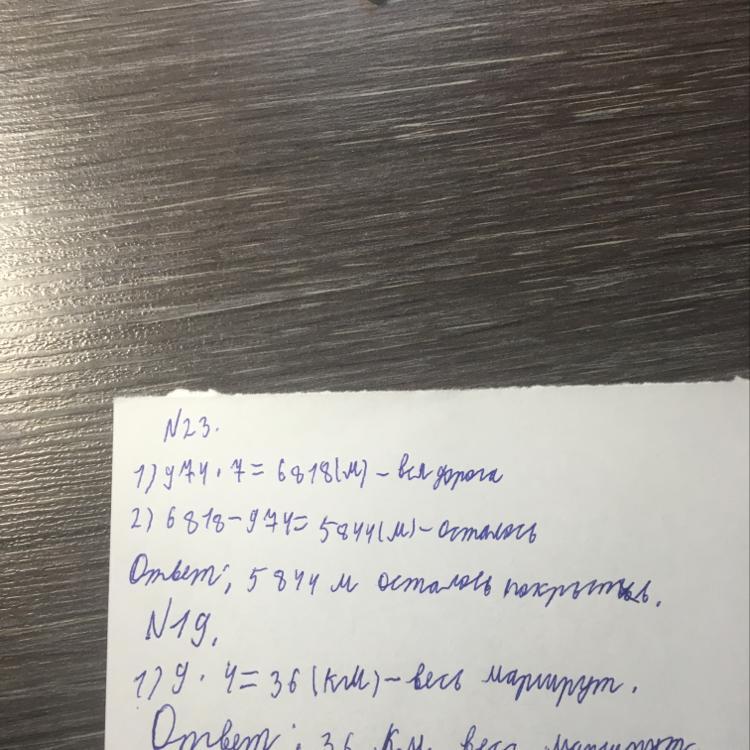 N23.
1) 974 · 7 = 6818(м) – вся дорога
2) 6818 – 974 = 5844(м) – осталось
Ответ: 5844 м осталось покрыть.
N19.
1) 9 · 4 = 36 (км) – весь маршрут.
Ответ: 36 км. весь маршрут